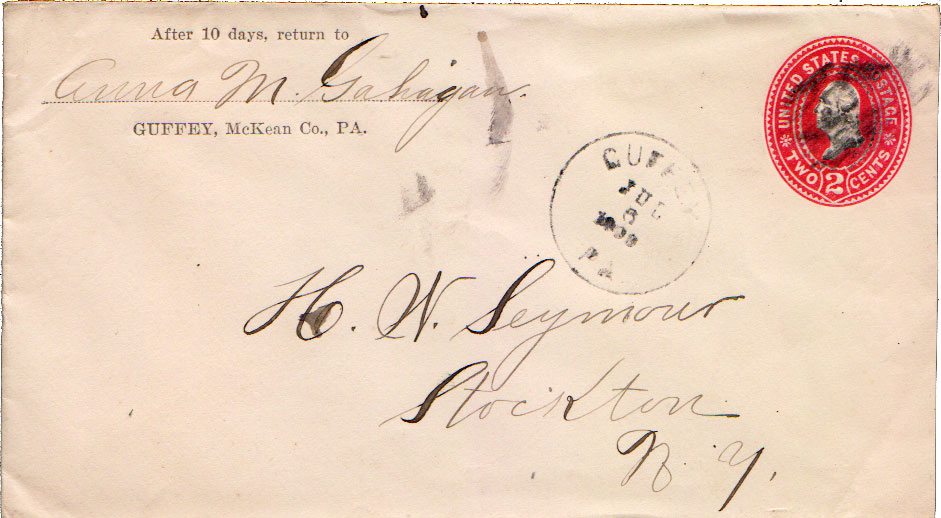 After 10 days, return to
Anna M. Gahagan.
GUFFEY, McKean Co., PA.
UNITED STATES POSTAGE
TWO 2 CENTS
GUFFEY
JUL
PA
H. W. Seymour
Stockton
N. Y.